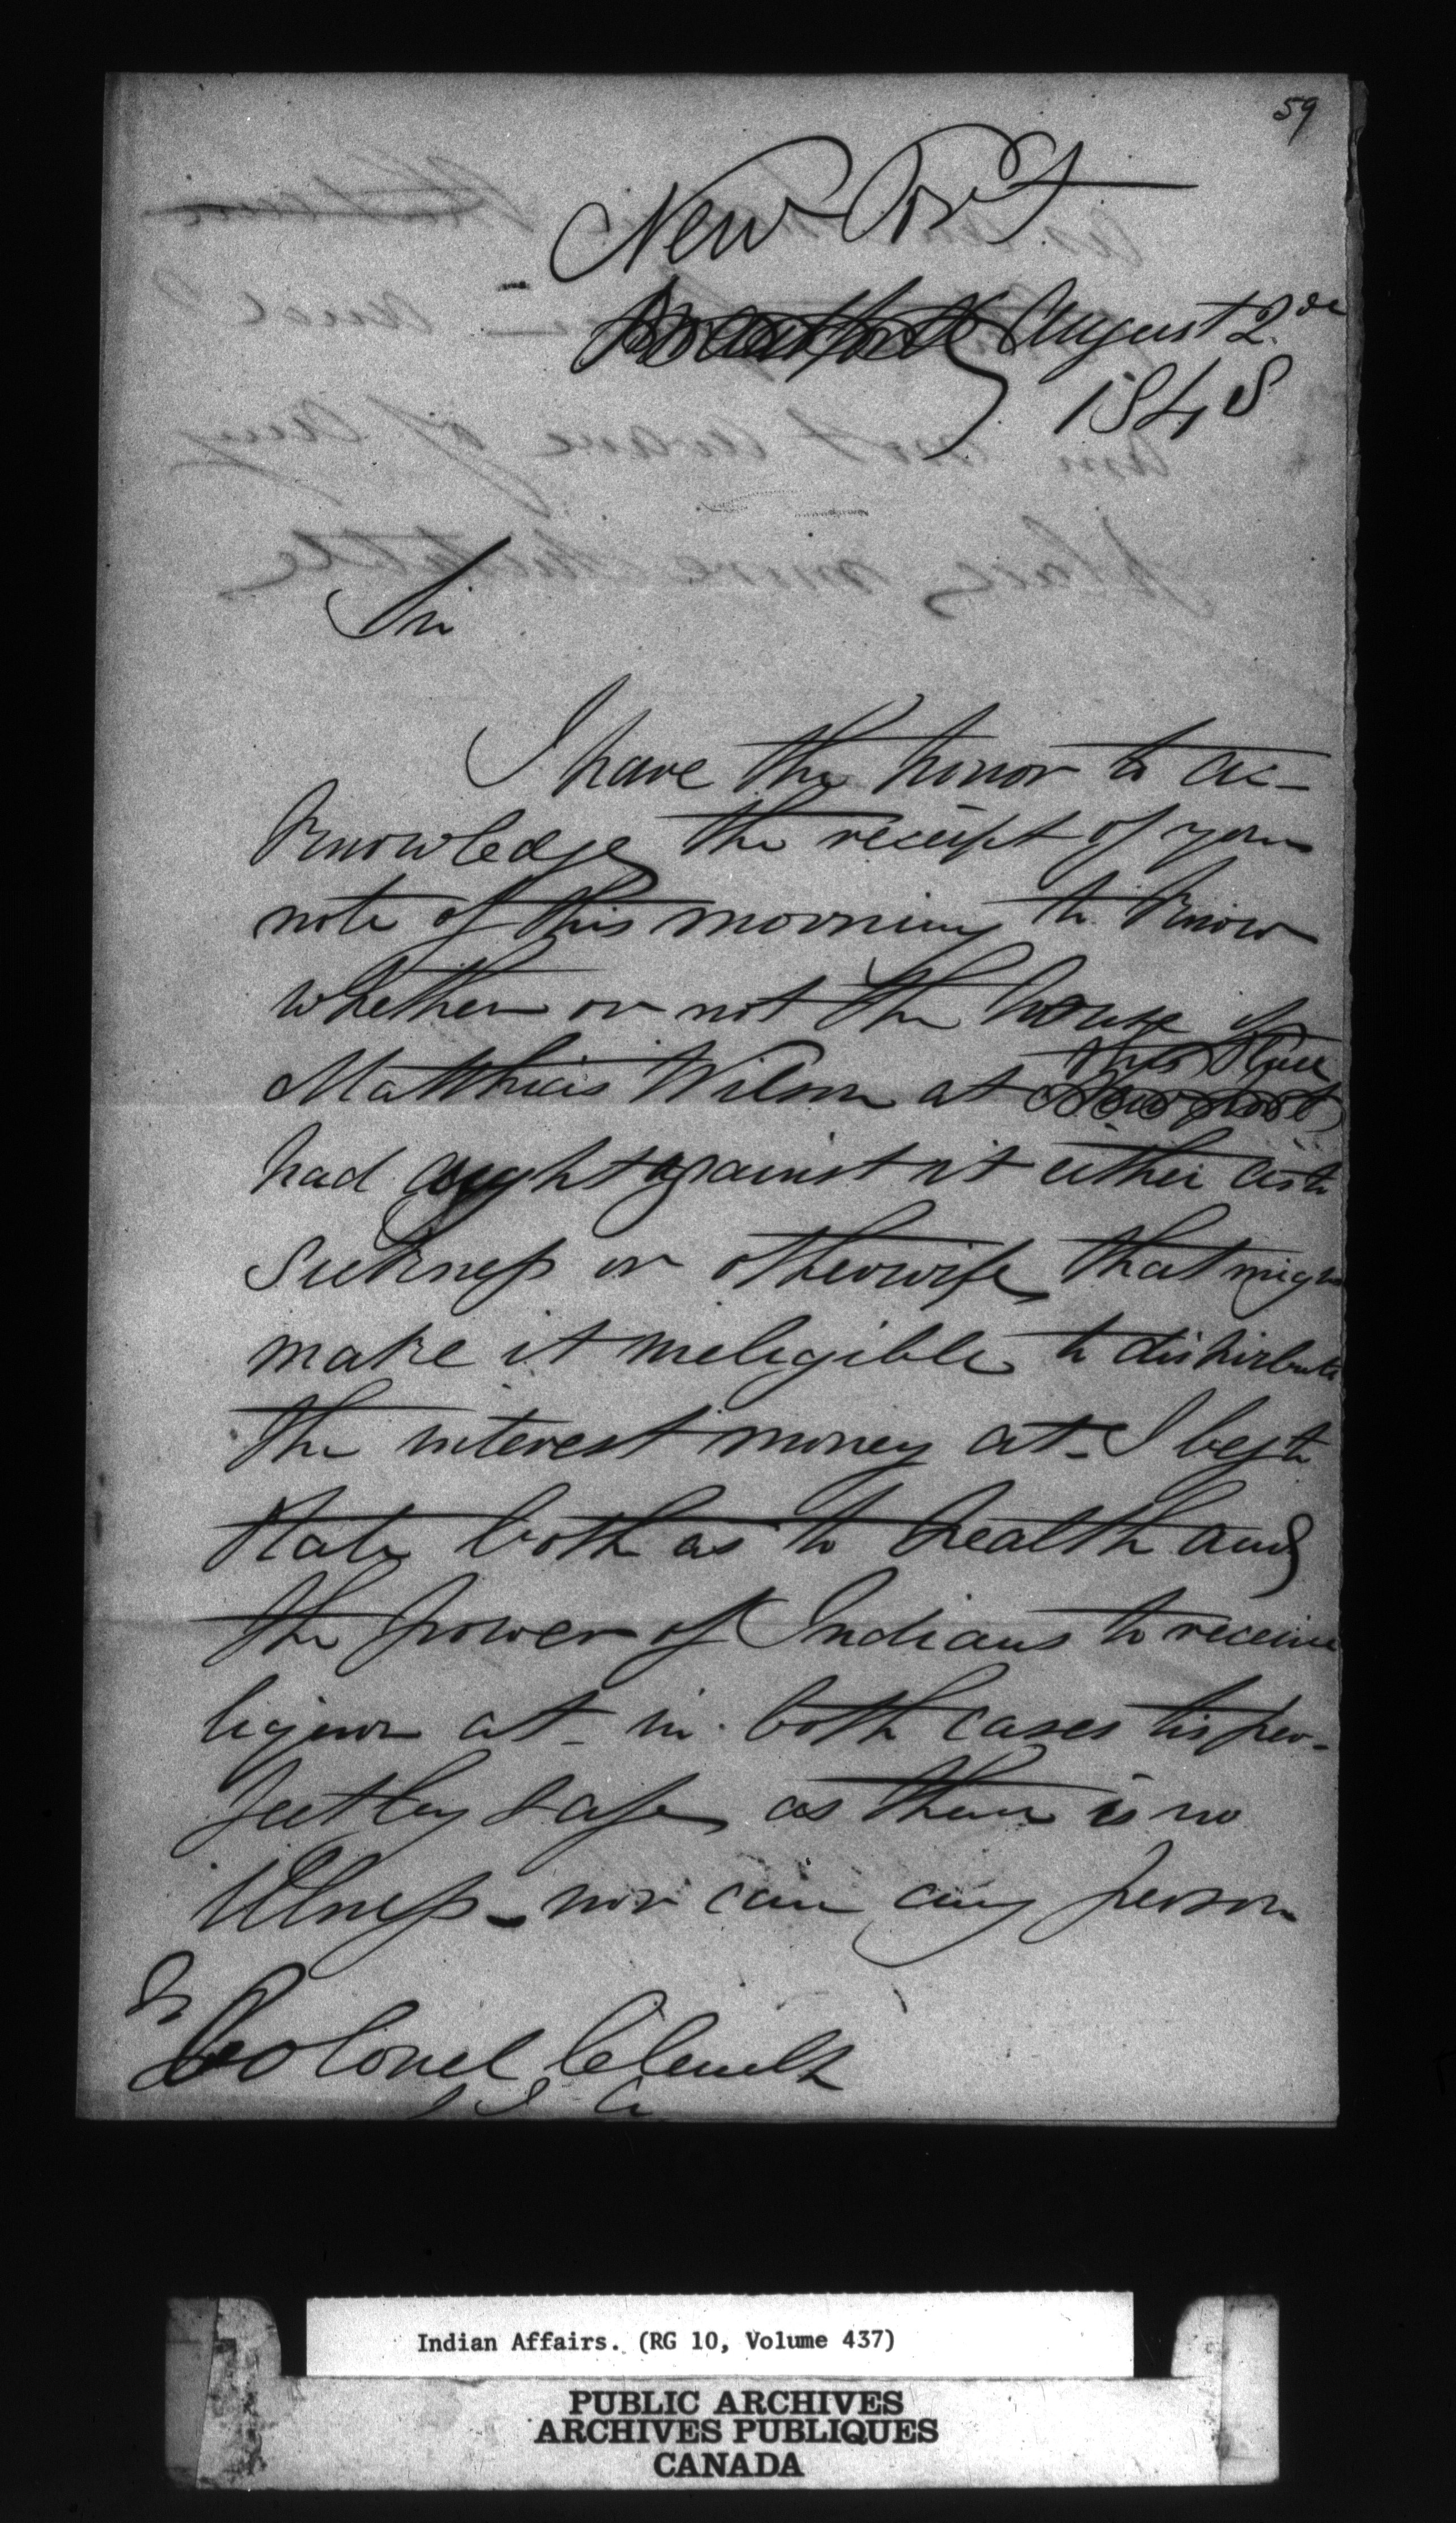 59
New Port
Brantford August 2de
1848
Sir
I have the honor to ac-
knowledge the receipt of your
note of this morning to know
whether or not the house of
this place
Matthias Wilson at Newport
had aught against it either as to
sickness or otherwise that might
make it ineligible to distribute
the interest money at - I beg to
state both as to health and
the power of Indians to receive
liquor at - in both cases tis per-
fectly safe as there is no
illness - nor can any person
To
Colonel Clench
J. S. A
Indian Affairs. (RG 10, Volume 437)
PUBLIC ARCHIVES
ARCHIVES PUBLIQUES
CANADA